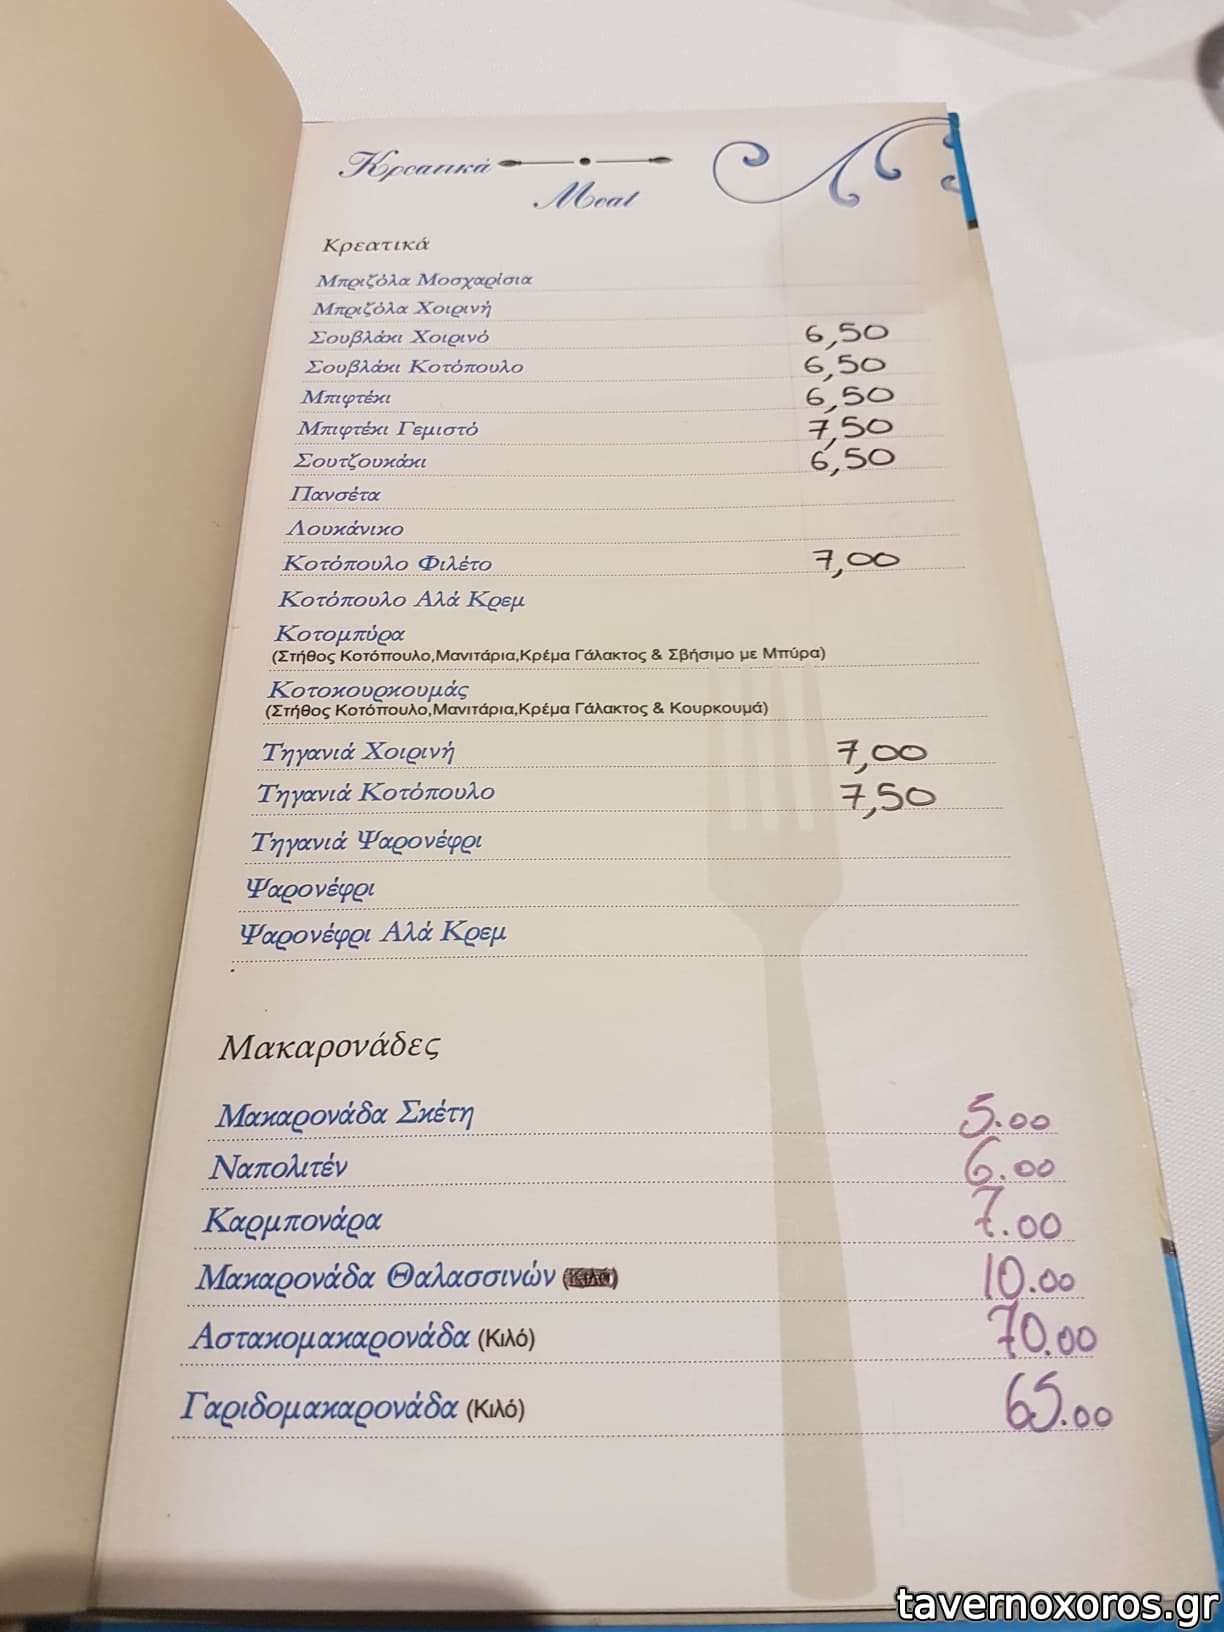 Κρεατικά
Meat
Κρεατικά
Μπριζόλα Μοσχαρίσια
Μπριζόλα Χοιρινή
Σουβλάκι Χοιρινό 6,50
Σουβλάκι Κοτόπουλο 6,50
Μπιφτέκι 6,50
Μπιφτέκι Γεμιστό 7,50
Σουτζουκάκι 6,50
Πανσέτα
Λουκάνικο
Κοτόπουλο Φιλέτο 7,00
Κοτόπουλο Αλά Κρεμ
Κοτομπύρα
(Στήθος Κοτόπουλο,Μανιτάρια,Κρέμα Γάλακτος & Σβήσιμο με Μπύρα)
Κοτοκουρκουμάς
(Στήθος Κοτόπουλο,Μανιτάρια,Κρέμα Γάλακτος & Κουρκουμά)
Τηγανιά Χοιρινή 7,00
Τηγανιά Κοτόπουλο 7,50
Τηγανιά Ψαρονέφρι
Ψαρονέφρι
Ψαρονέφρι Αλά Κρεμ
Μακαρονάδες
Μακαρονάδα Σκέτη 5.00
Ναπολιτέν 6.00
Καρμπονάρα 7.00
Μακαρονάδα Θαλασσινών 10.00
Αστακομακαρονάδα (Κιλό) 70.00
Γαριδομακαρονάδα (Κιλό) 65.00
tavernoxoros.gr